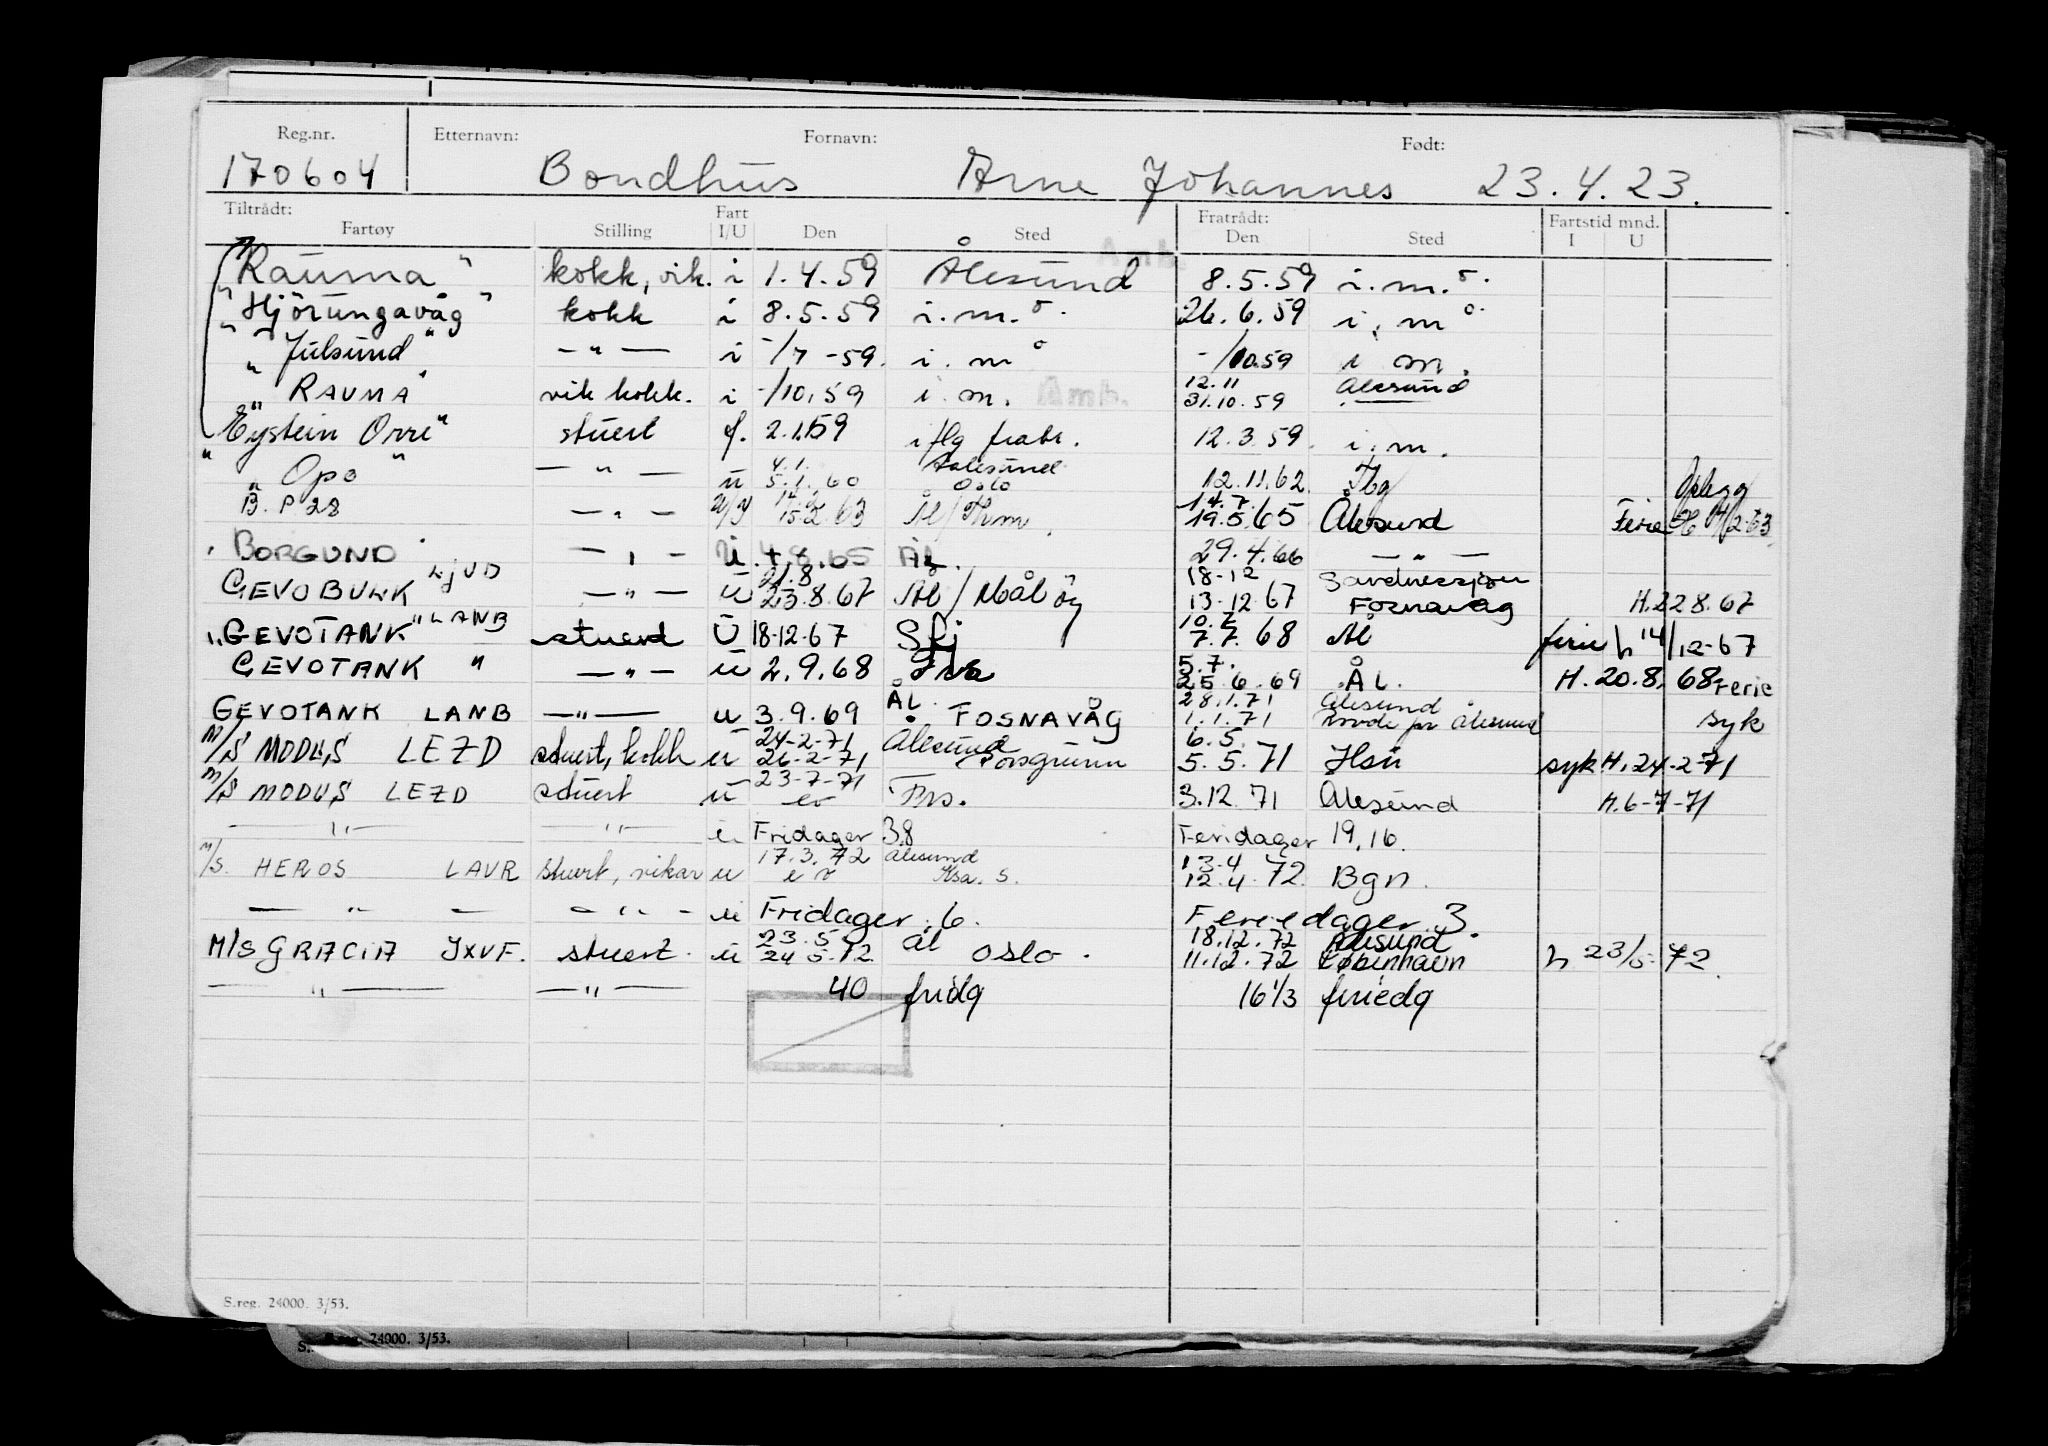 Reg.nr. Etternavn: Fornavn: Født:
170604 Bondhus Arne Johannes 23.4.23.
Tiltrådt: Fart Fratrådt: Fartstid mnd.
Fartøy Stilling I/U Den Sted Den Sted I U
"Rauma" kokk, vik. i 1.4.59 Ålesund Amb. 8.5.59 i.m.
"Hjörungavåg" kokk i 8.5.59 i.m. 26.6.59 i.m
"Julsund" — " — i -/7 -59. i. m -/10.59 i m.
"RAUMA" vik kokk. i -/10.59 i. m. Amb. 12.11 31.10.59 Ålesund
"Eystein Orre" stuert 2.1.59 12.3.59. i.m.
"Opo" — " — u 4.1. 5.1.60 Aalesund Oslo 12.11.62 Tbg Opplegg
B.P 28 — " — 15.2.63 Ål/ 14.7. 19.5.65 Ålesund Ferie
"BORGUND" — " — u 4.8.65 ÅL. 29.4.66 — " —
GEVOBULK LJUD — " — u 21.8 23.8.67 Ål/Måløy 18-12 13-12.67 Sandnessjøen Fosnavåg H.22 8.67
"GEVOTANK" LANB stuerd U 18-12-67 Ssj 10.7 7.7.68 Ål ferie h 14/12-67
GEVOTANK " — " — u 2.9.68 5.7. 25.6.69 ÅL. H. 20.8.68 Ferie
GEVOTANK LANB — " — u 3.9.69 ÅL. FOSNAVÅG 28.1.71 1.1.71 Ålesund syk
M/S MODUS LEZD stuert, kokk u 24-2-71 26-2-71 Ålesund Porsgrunn 6.5. 5.5.71 Hsu syk H. 24-2-71
M/S MODUS LEZD stuert u 23-7-71 Frs. 3.12.71 Ålesund H. 6-7-71
— " — — " — u Fridager 38 Feridager 19,16
M/S. HEROS LAVR stuert, vikar u 17.3.72 Ålesund Ksa. S. 13.4 12.4.72 Bgn.
— " — — " — u Fridager 6. Feriedager 3.
M/S GRACIA JXVF. stuert. u 23.5 24 5.72 ål oslo. 18.12.72 11.12.72 Ålesund København h 23/5-72.
— " — — " — 40 fridg 16 1/3 feriedg
S.reg. 24000. 3/53.
24000. 3/53.